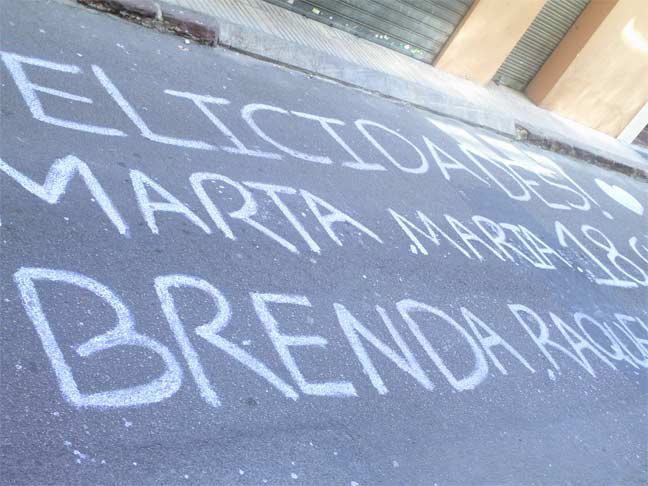 ELICIDADES!
MARTA, MARIA 18
BRENDA, RAQUE